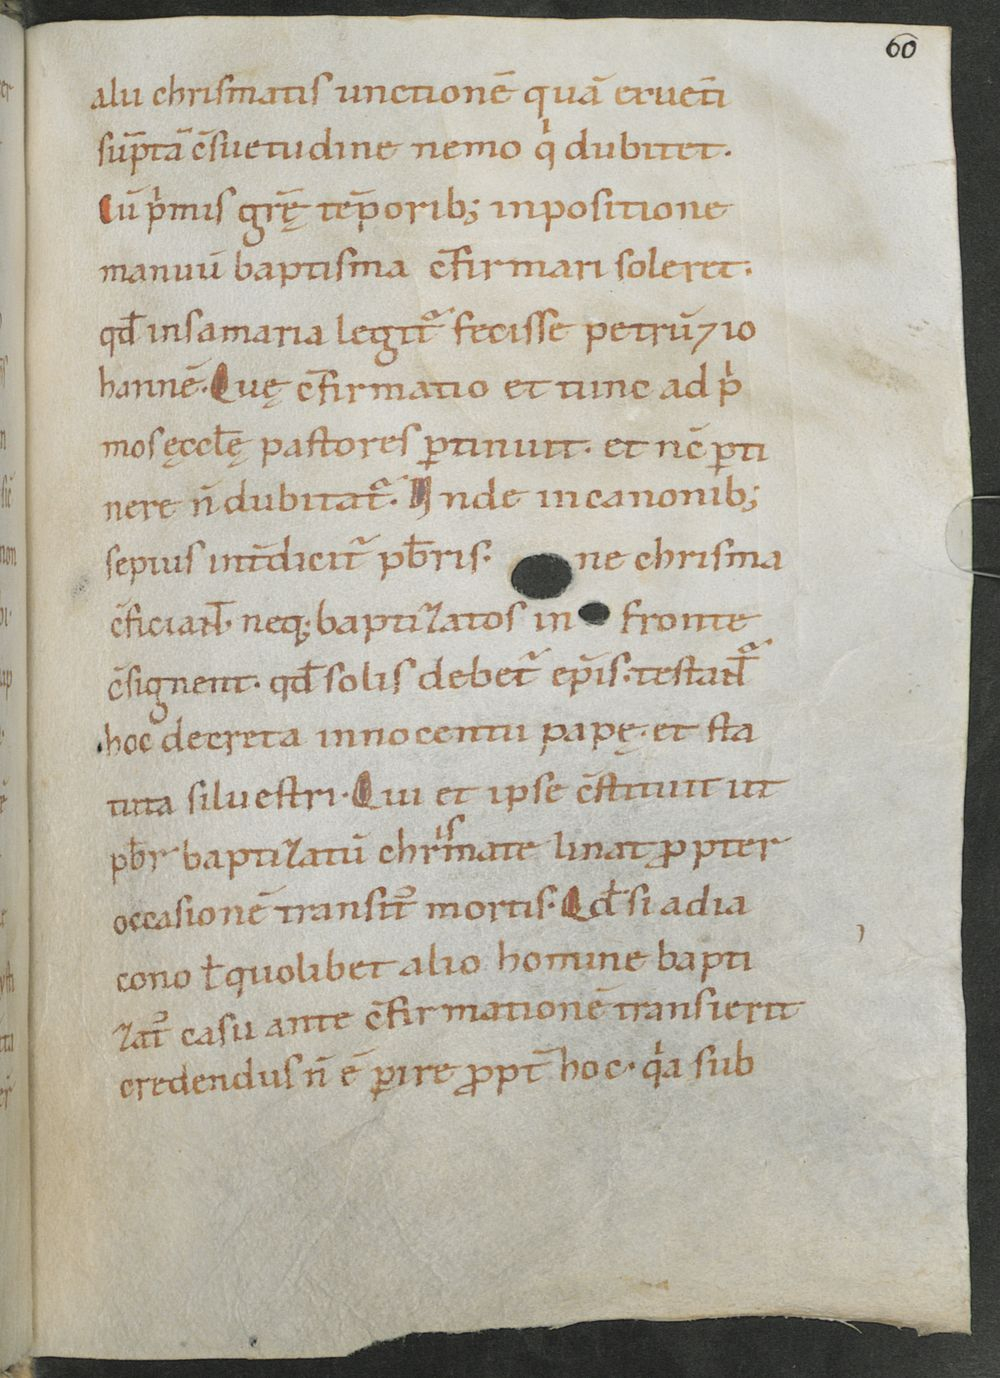 60
alu chrismatis unctionē quā eruēti
sūptā c̄suetudine nemo qͥ dubitet.
Cū pͥmis grę̄ tēporib; inpositione
manuū baptisma c̄firmari soleret.
qđ insamaria legitᷣ fecisse petrū ⁊ io
hannē. Quę c̄firmatio et tunc ad pͥ
mos ęccƚę pastores ꝑtinuit. et nc̄ ꝑti
nere n̄ dubitatᷣ. Inde incanonib;
sepius int̄dicitᷣ pb̄ris. ne chrisma
c̄ficiant. neq; baptizatos in fronte
c̄signent. qđ solis debetᷣ ep̄is. testantᷣ
hoc decreta innocentii papę. et sta
tuta siluestri. Qui et ipse c̄stituit ut
pb̄r baptizatū chrismate linat ꝓpter
occasionē transit᷒ mortis. Qđ si adia
cono ƚ quolibet alio homine bapti
zat᷒ casu ante c̄firmationē transierit
credendus n̄ ē ꝑire ꝓpt̄ hoc. qͥa sub